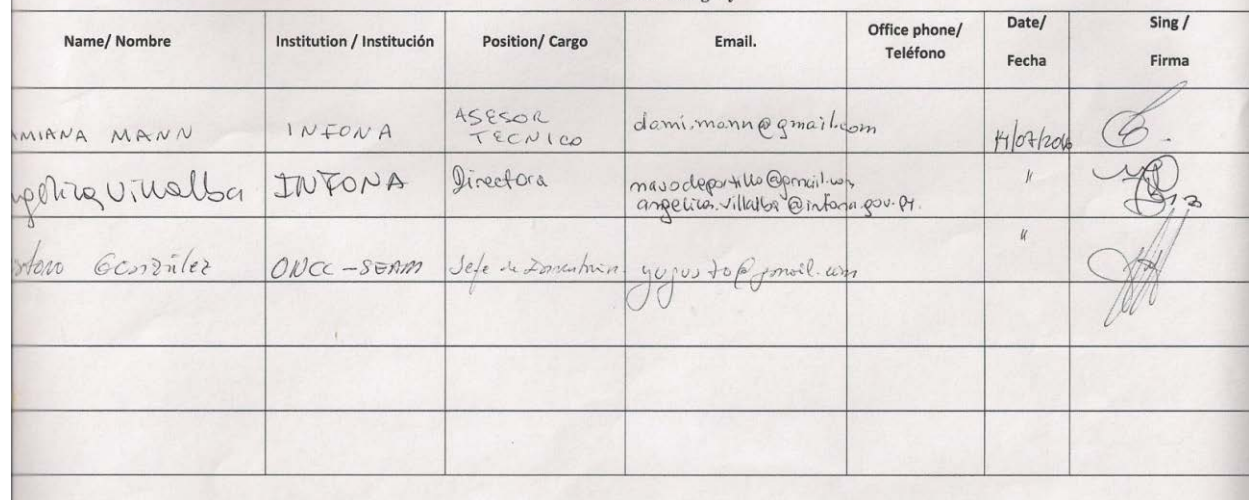 Name/ Nombre Institution / Institución Position/ Cargo Email. Office phone/ Teléfono Date/ Fecha Sing / Firma
MIANA MANN INFONA ASESOR TECNICO dami.mann@gmail.com 14/07/2016
Villalba INFONA Directora
angelica.villalba@infona.gov.py. "
González ONCC-SEAM Jefe de "